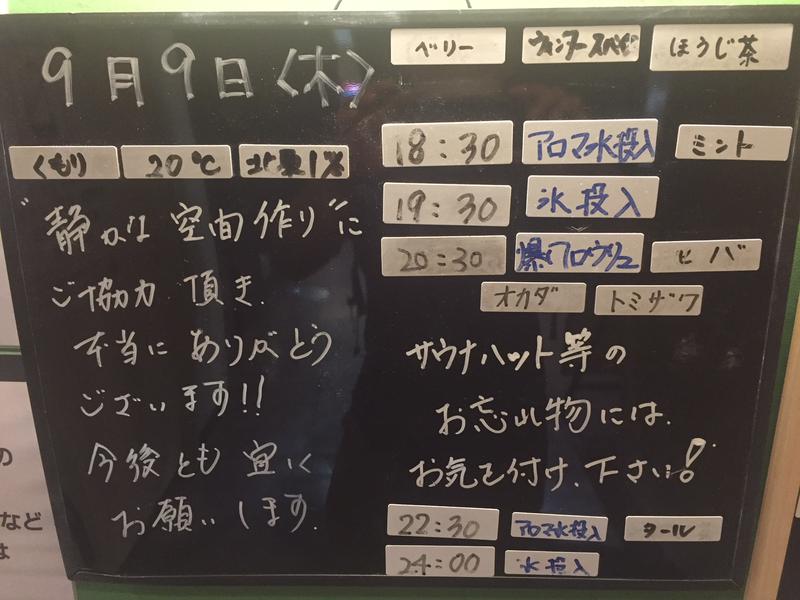 9月9日〈木〉
くもり 20℃ 1%
"静かな空間作り"に
ご協力頂き、
本当にありがとう
ございます!!
今後とも宜しく
お願いします。
ベリー ウィンタースパイス ほうじ茶
18:30 アロマ水投入 ミント
19:30 氷投入
20:30 爆風ロウリュ ヒバ
オカダ トミザワ
サウナハット等の
お忘れ物には、
お気を付け下さい!
22:30 アロマ水投入 タール
24:00 氷投入
など